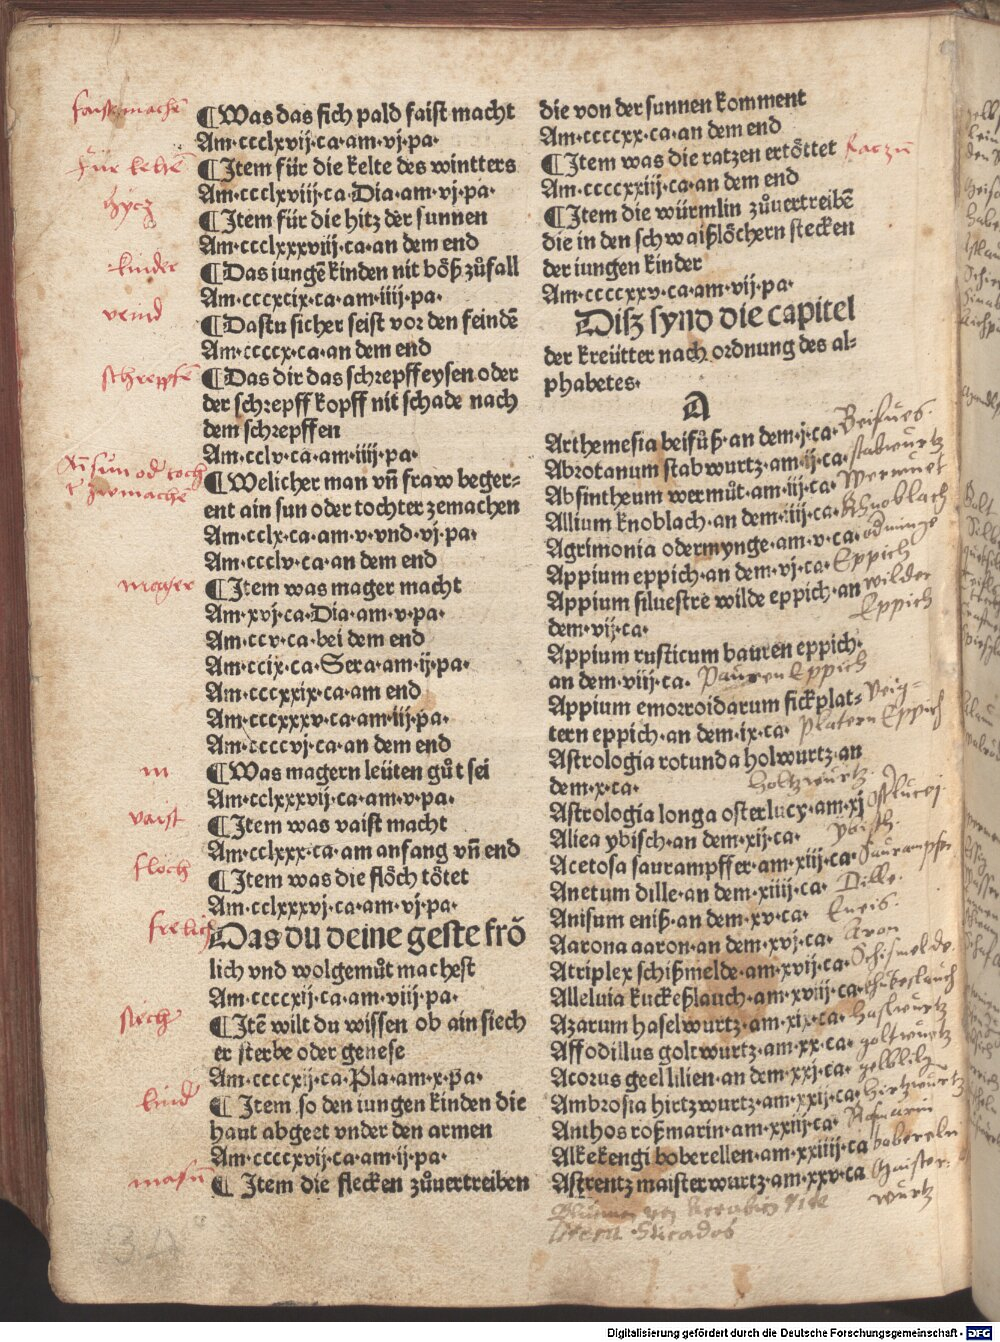 ¶Was das sich pald faist macht
Am·ccclxvij·ca·am·vj·pa·
¶Item für die kelte des wintters
Am·ccclxviij·ca·Dia·am·vj·pa·
¶Item für die hitz der sunnen
Am·ccclxxxviij·ca·an dem end
¶Das iungē kinden nit bo̊ß zůfall
Am·cccxcix·ca·am·iiij·pa·
¶Dastu sicher seist vor den feindē
Am·ccccx·ca·an dem end
¶Das dir das schrepffeysen oder
der schrepff kopff nit schade nach
dem schrepffen
Am·cclv·ca·am·iiij·pa·
¶Welicher man vn̄ fraw beger⸗
ent ain sun oder tochter zemachen
Am·cclx·ca·am·v·vnd·vj·pa·
Am·ccclv·ca·an dem end
¶Item was mager macht
Am·xvj·ca·Dia·am·v·pa·
Am·ccv·ca·bei dem end
Am·ccix·ca·Sera·am·ij·pa·
Am·cccxxix·ca·am end
Am·cccxxxv·ca·am·iij·pa·
Am·ccccvj·ca·an dem end
¶Was magern leüten gůt sei
Am·cclxxxvij·ca·am·v·pa·
¶Item was vaist macht
Am·cclxxx·ca·am anfang vn̄ end
¶Item was die flöch tötet
Am·cclxxxvj·ca·am·vj·pa·
Das du deine geste frö
lich vnd wolgemůt machest
Am·ccccxij·ca·am·viij·pa·
¶Itē wilt du wissen ob ain siech
er sterbe oder genese
Am·ccccxij·ca·Pla·am·x·pa·
¶ Item so den iungen kinden die
haut abgeet vnder den armen
Am·ccccxvij·ca·am·ij·pa·
¶ Item die flecken zůuertreiben
faist machē
für keltē
hycz
kinder
veind
schrepfē
mager
m
vaist
flöch
frelich
siech
kind
die von der sunnen komment
Am·ccccxx·ca·an dem end
¶Item was die ratzen ertöttet
Am·ccccxxiij·ca·an dem end
¶Item die würmlin zůuertreibē
die in den schwaißlöchern stecken
der iungen kinder
Am·ccccxxv·ca·am·vij·pa·
Disz synd die capitel
der kreütter nach ordnung des al⸗
phabetes·
A
Arthemesia beifůß·an dem·j·ca·
Abrotanum stabwurtz·am·ij·ca·
Absintheum wermůt·am·iij·ca·
Allium knoblach·an dem·iiij·ca·
Agrimonia odermynge·am·v·ca·
Appium eppich·an dem·vj·ca·
Appium siluestre wilde eppich·an
dem·vij·ca·
Appium rusticum bauren eppich·
an dem·viij·ca·
Appium emorroidarum fickplat⸗
tern eppich·an dem·ix·ca·
Astrologia rotunda holwurtz·an
dem·x·ca·
Astrologia longa osterlucy·am·xj
Aliea ybisch·an dem·xij·ca·
Acetosa saurampffer·am·xiij·ca·
Anetum dille·an dem·xiiij·ca·
Anisum eniß·an dem·xv·ca·
Aarona aaron·an dem·xvj·ca·
Atriplex schißmelde·am·xvij·ca·
Alleluia kuckeßlauch·am·xviij·ca·
Azarum haselwurtz·am·xix·ca·
Affodillus goltwurtz·am·xx·ca·
Acorus geel lilien·an dem·xxj·ca·
Ambrosia hirtzwurtz·am·xxij·ca·
Anthos roßmarin·am·xxiij·ca·
Alkekengi boberellen·am·xxiiij·ca
Astrentz maisterwurtz·am·xxv·ca
Beifues
stabwurtz
Wermuet
Knoblach
odminge
Eppich
wilder
Eppich
Pauren Eppich
Feig⸗
platern Eppich
holtzwurtz
Osterlucej
ybisch
Saurampfer
Dille
Eneis
Aron
haslwurtz
goltwurtz
hirtzwurtz
Rosmarin
bobereln
Maister⸗
wurtz